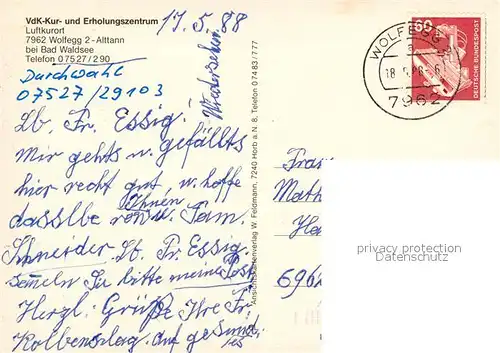 VdK-Kur- und Erholungszentrum
Luftkurort
7962 Wolfegg 2 - Alttann
bei Bad Waldsee
Telefon 07527/290
17.5.88
Durchwahl
07527/29103
Lb. Fr. Essig!
Mir gehts u. gefällts
hier recht gut, u. hoffe
dasslbe von Ihnen u. Fam.
Schneider. Lb. Fr. Essig.
Sie bitte meine Post
Herzl. Grüße Ihre Fr.
auf gesund
Ansichtskartenverlag W. Feldmann, 7240 Horb a. N. 8, Telefon 07483/777
WOLFEGG
18.5.88
7962
60
DEUTSCHE BUNDESPOST
Frau
privacy protection
Datenschutz